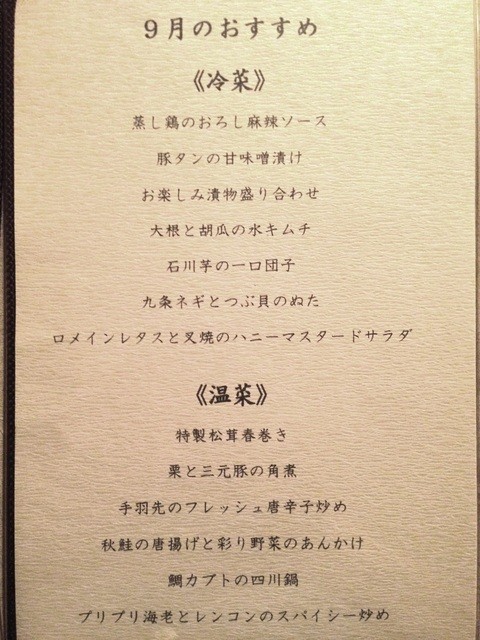 9月のおすすめ
《冷菜》
蒸し鶏のおろし麻辣ソース
豚タンの甘味噌漬け
お楽しみ漬物盛り合わせ
大根と胡瓜の水キムチ
石川芋の一口団子
九条ネギとつぶ貝のぬた
ロメインレタスと叉焼のハニーマスタードサラダ
《温菜》
特製松茸春巻き
栗と三元豚の角煮
手羽先のフレッシュ唐辛子炒め
秋鮭の唐揚げと彩り野菜のあんかけ
鯛カブトの四川鍋
プリプリ海老とレンコンのスパイシー炒め